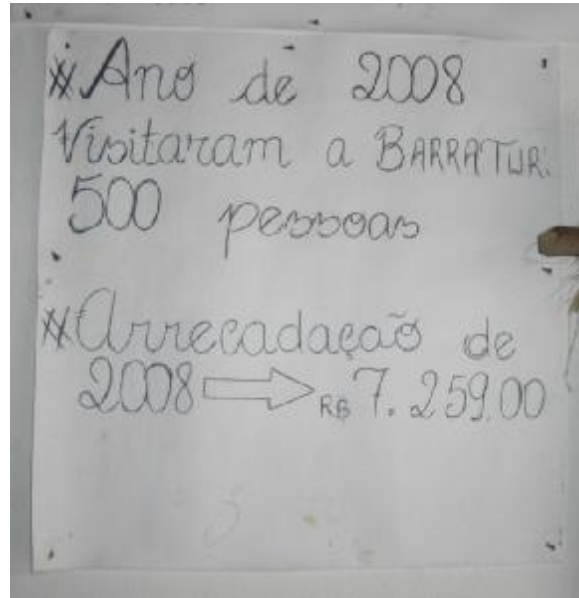 # Ano de 2008
Visitaram a BARRATUR:
500 pessoas
# Arrecadação de
2008 ⇨ R$ 7.259,00